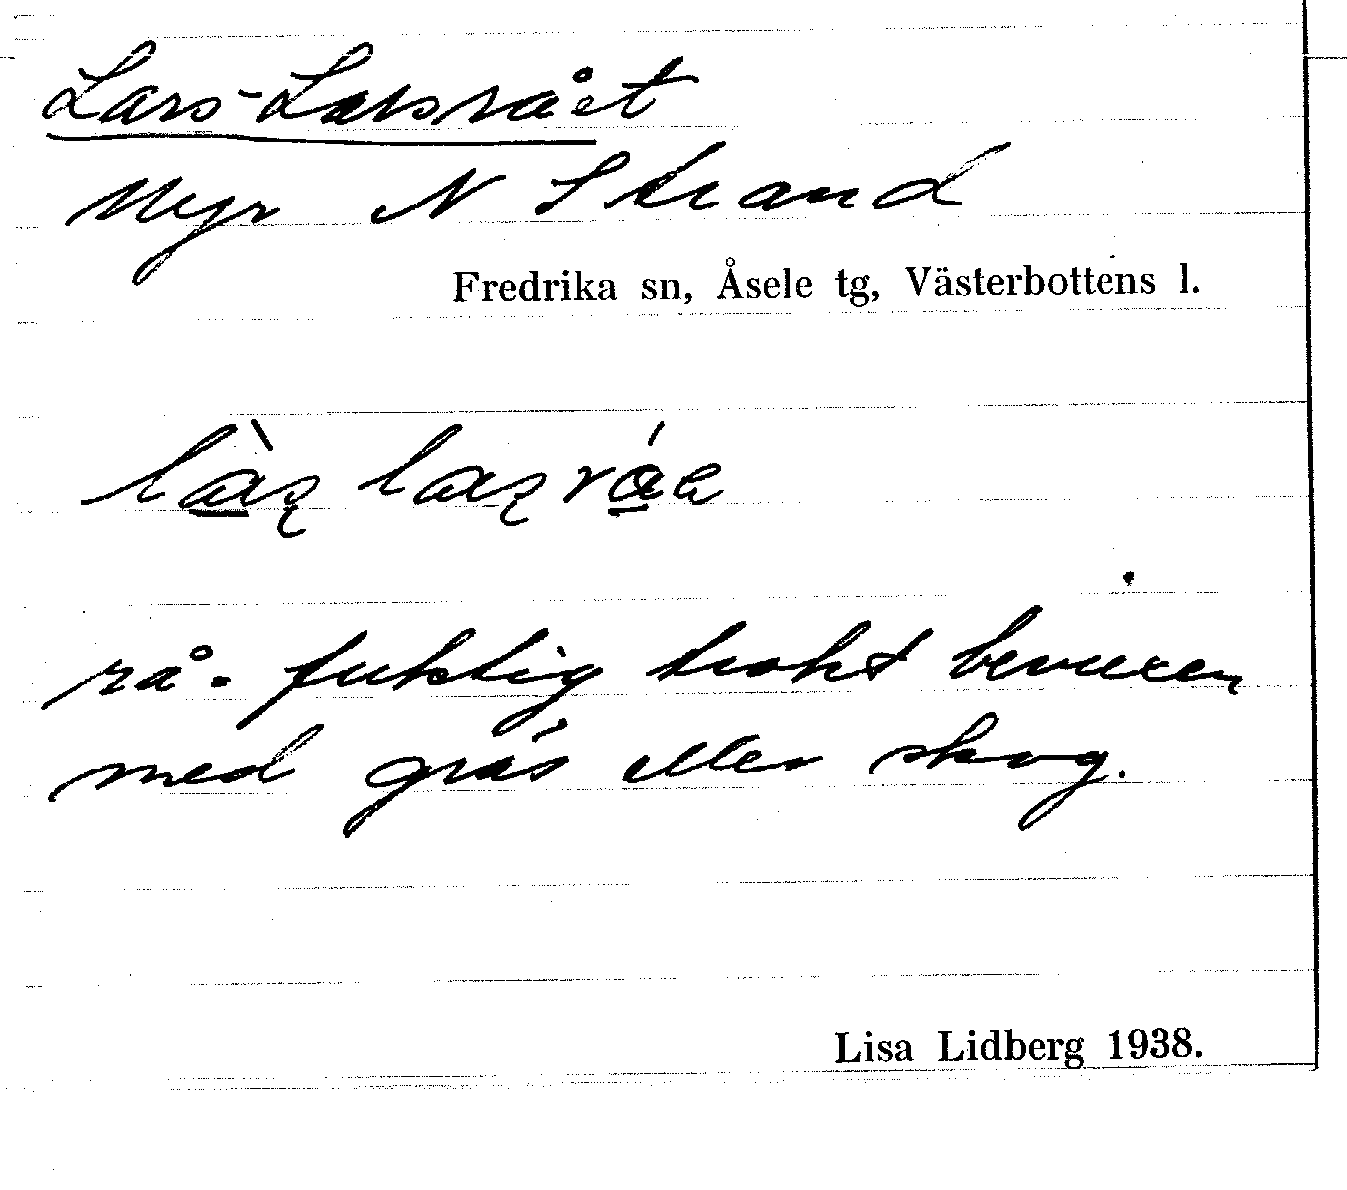 Lars-Larsrået
Myr N Strand
Fredrika sn, Åsele tg, Västerbottens l.
là̱ʂ laʂrá̱e
rå - fuktig trakt bevuxen
med gräs eller skog.
Lisa Lidberg 1938.